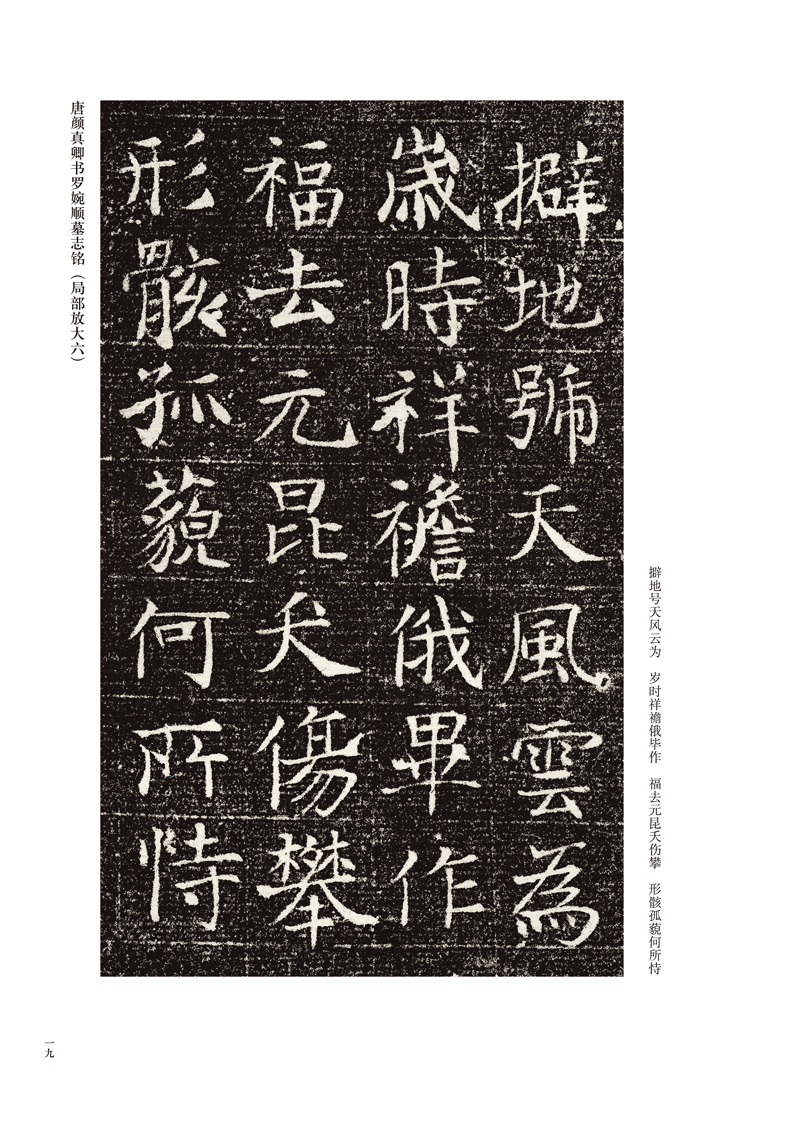 擗地号天风云为　岁时祥襜俄毕作　福去元昆夭伤攀　形骸孤藐何所恃
擗地號天風雲為
歲時祥襜俄畢作
福去元昆夭傷攀
形骸孤藐何所恃
唐颜真卿书罗婉顺墓志铭（局部放大六）
一九